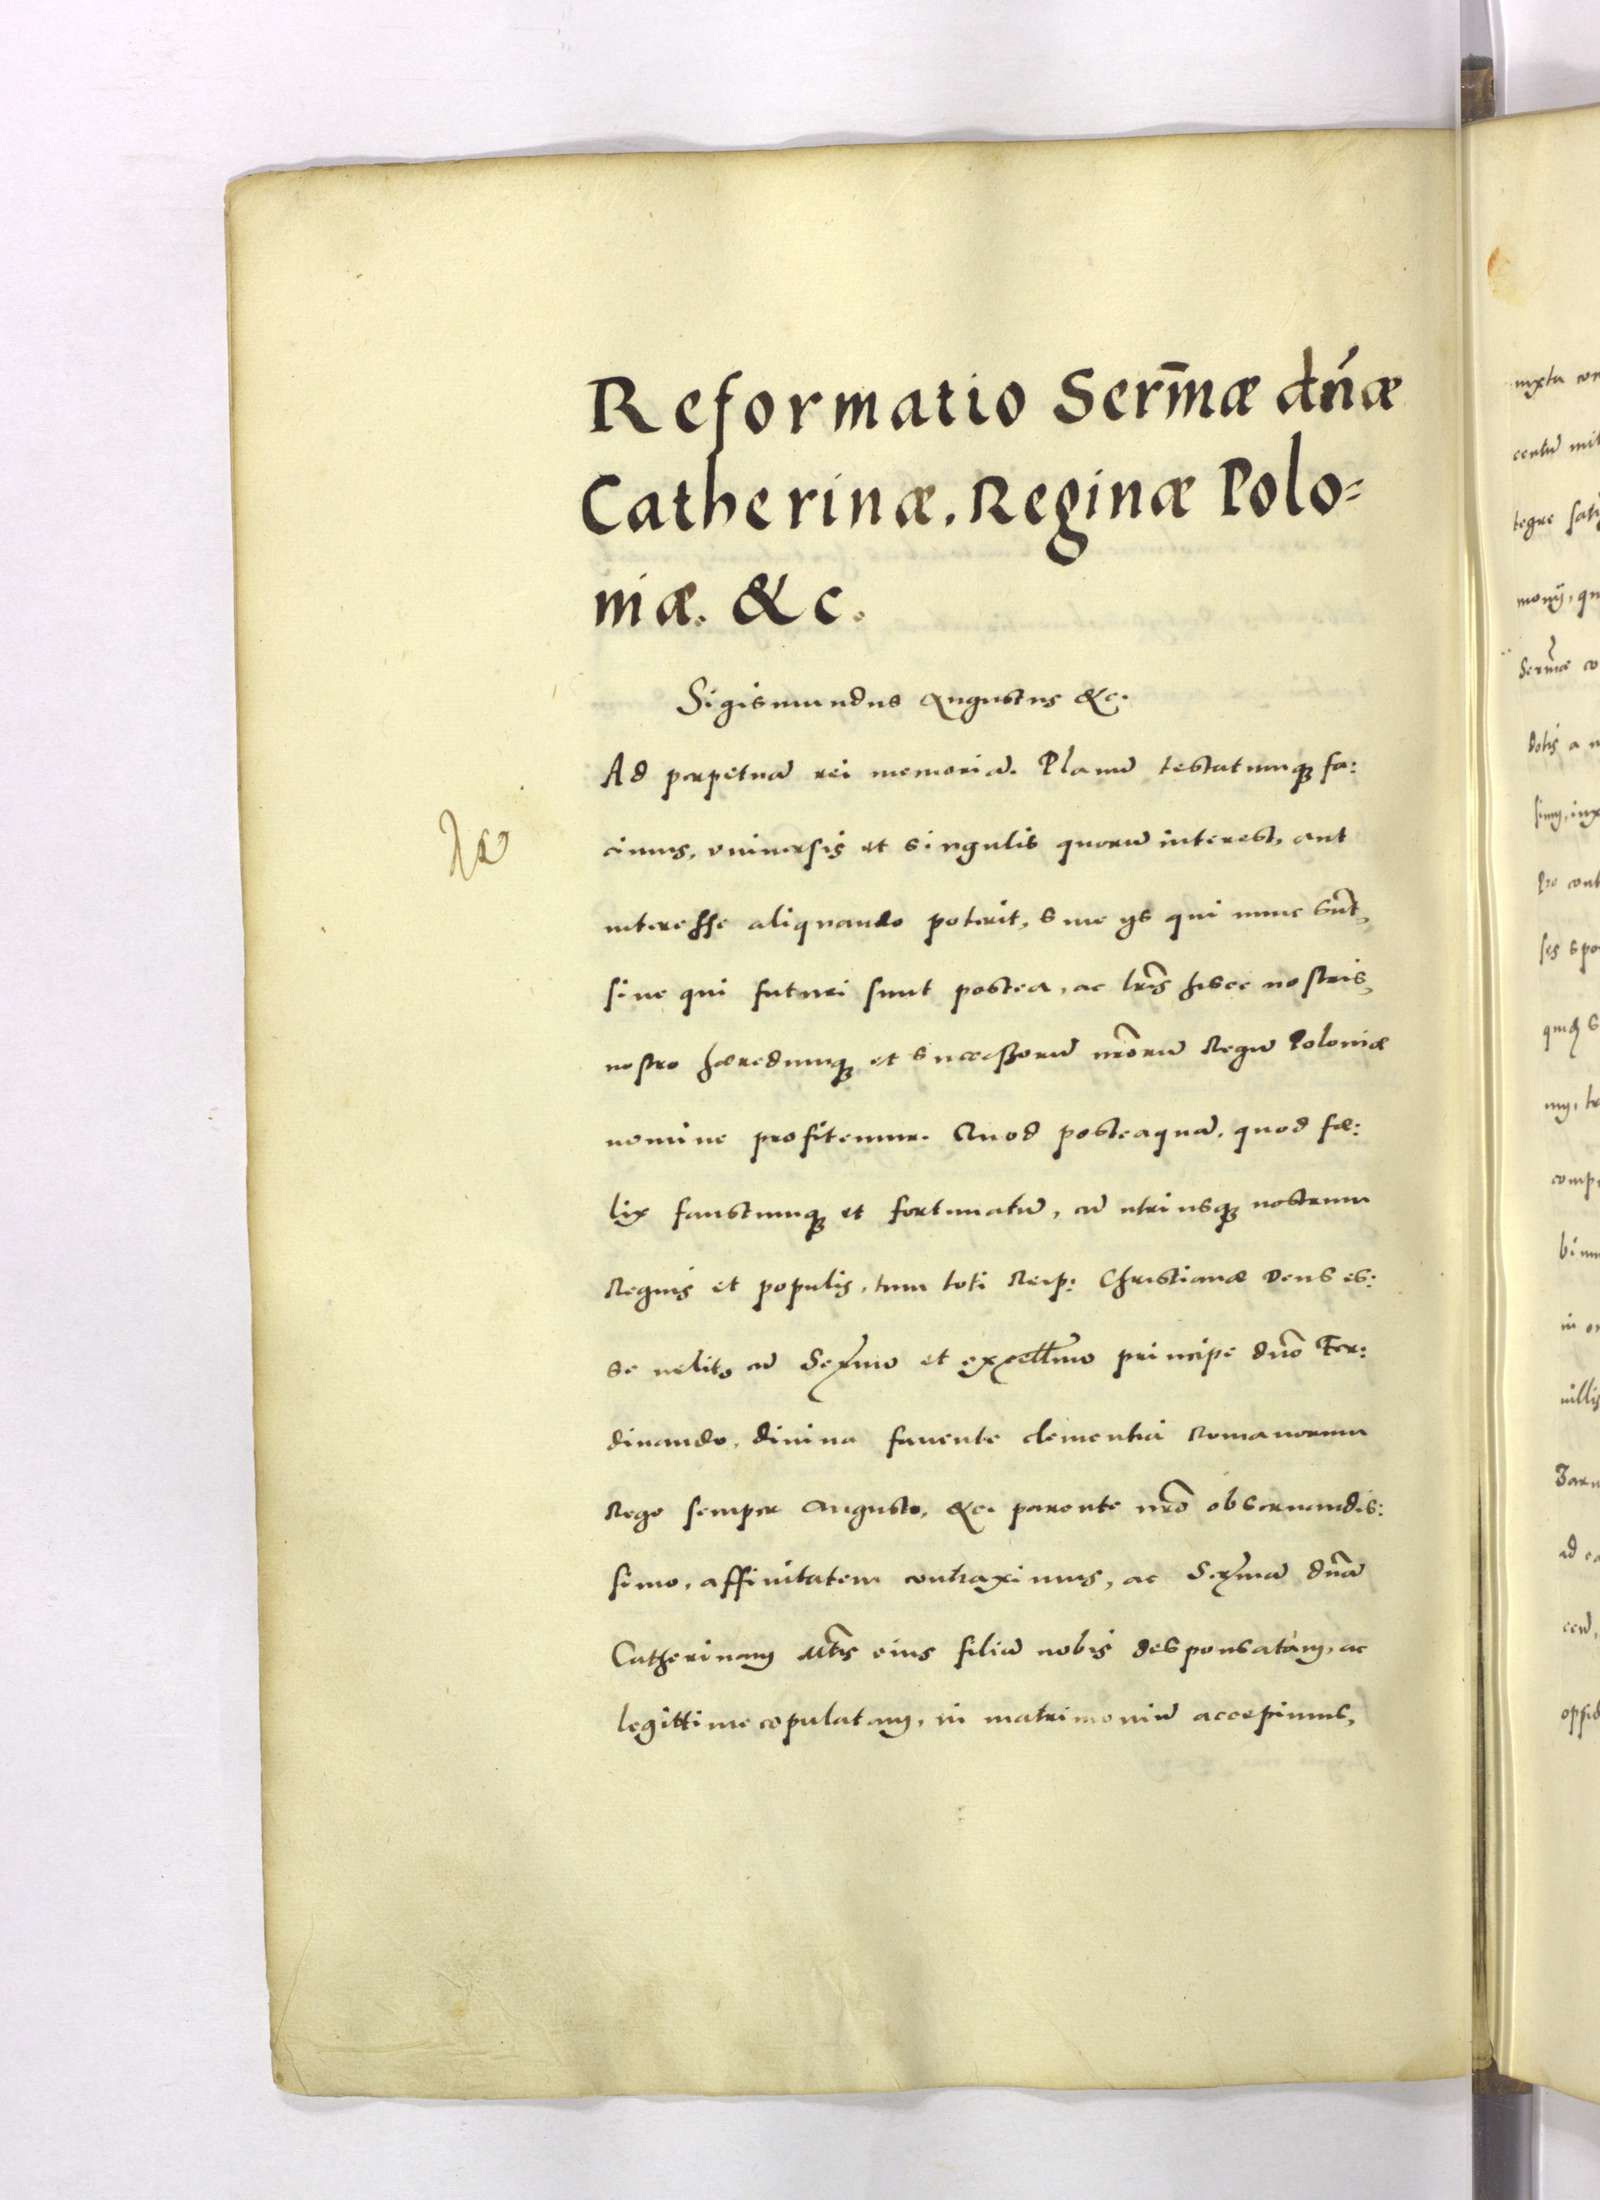 Reformatio Serm̄æ dn̄æ
Catherinæ. Reginæ Polo=
niæ. &c.
Sigismundus Augustus &c.
Ad perpetuā rei memoriā. Planū testatumqꝫ fa:
cimus, vniuersis et singulis quorū interest, aut
interesse aliquando poterit, siue ijs qui nunc sūt,
siue qui futuri sunt postea, ac lr̄is hisce nostris,
nostro hæredumqꝫ et successorū nr̄orū Regū Poloniæ
nomine profitemur. Quod posteaquā, quod fœ:
lix faustumqꝫ et fortunatū, cū utriusqꝫ nostrum
Regnis et populis, tum toti Reip: Christianæ Deus es:
se uelit, cū Serm̄o et excellm̄o principe dn̄o Fer:
dinando, diuina fauente clementia Romanorum
Rege semper Augusto, &c. parente nr̄o obseruandis:
simo, affinitatem contraximus, ac Serm̄ā dn̄ā
Catherinam Mt̄is eius filiā nobis desponsatam, ac
legittime copulatam, in matrimoniū accepimus,
iuxta con
centū mil
tegre sati
monij, qu
Serm̄æ co
dotis a n
simus, iux
pro cont
ses spo
comp
in
illis
Tarn
ad ea
oppid